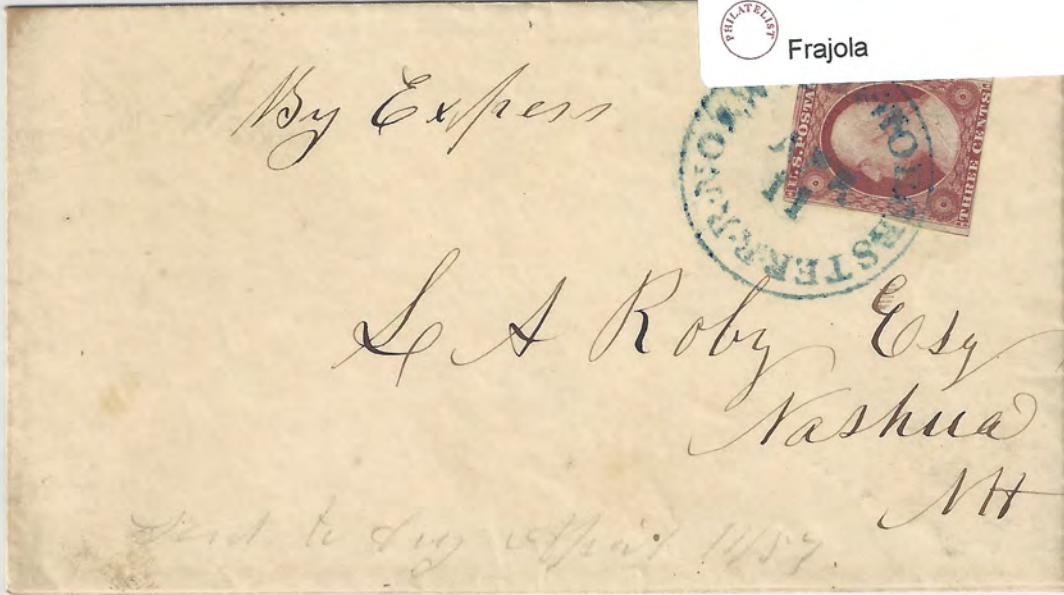 PHILATELIST
Frajola
By Express
U.S. POSTA
THREE CENTS
STER.R.R.NOR
L A Roby Esq
Nashua
NH